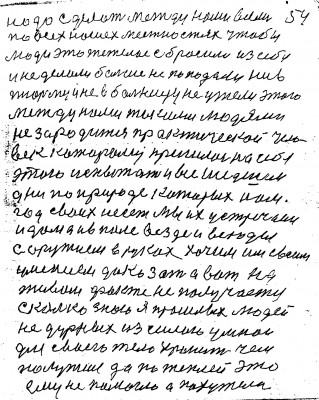 надо сделат между нами всеми 54
по всех наших местностях чтобы
люди это тяжелае сбросили из себя
и не делали больше не попадали ни в
тюрму и не в больницу неужели этого
между нами такими людями
не зародится практической чело
век каторалий пришла на себе
этого испытать и все
ани по природе каторых пом.
год своих несет мы их устречаем
и дома и в поле везде и всюды
с оружием в руках хочим им своим
умением доказат а вот на
живом факте не получаеться
сколко знаю я прошлых людей
не дурных из силою умной
для своего тело хранит чем
получше да потеплей это
ему не помогло а похужела